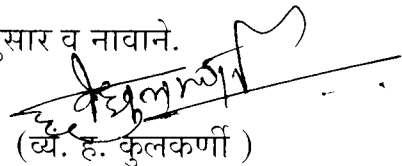 सार व नावाने.
(व्यं. ह. कुलकर्णी )